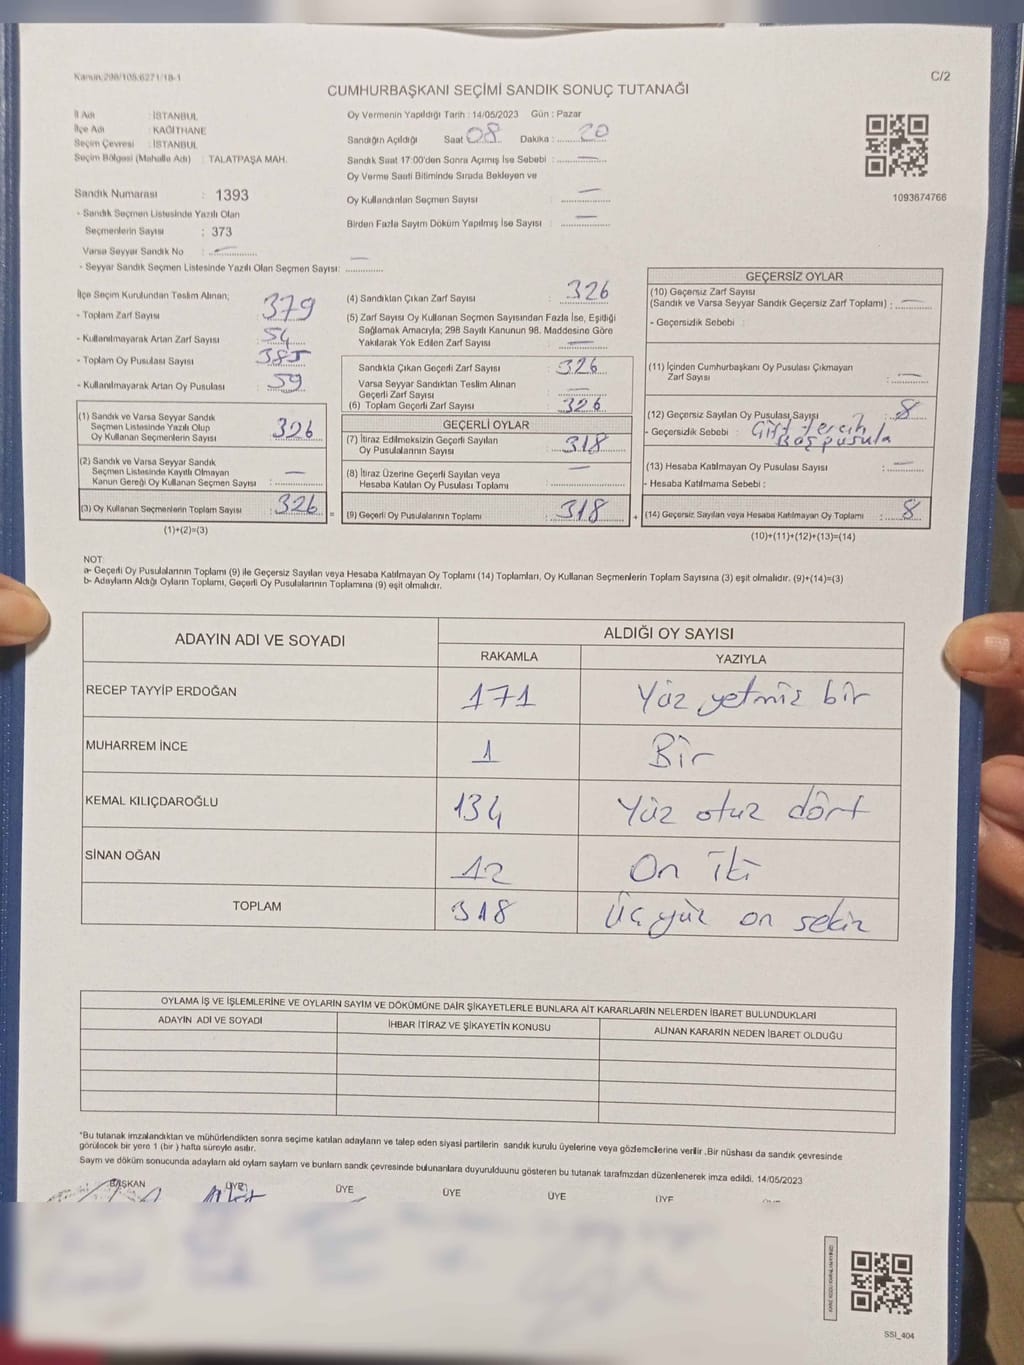 Kanun:298/105:6271/18-1
C/2
CUMHURBAŞKANI SEÇİMİ SANDIK SONUÇ TUTANAĞI
İl Adı : İSTANBUL
İlçe Adı : KAĞITHANE
Seçim Çevresi : İSTANBUL
Seçim Bölgesi (Mahalle Adı) : TALATPAŞA MAH.
Sandık Numarası : 1393
- Sandık Seçmen Listesinde Yazılı Olan
Seçmenlerin Sayısı : 373
Varsa Seyyar Sandık No : —
- Seyyar Sandık Seçmen Listesinde Yazılı Olan Seçmen Sayısı: —
Oy Vermenin Yapıldığı Tarih : 14/05/2023 Gün : Pazar
Sandığın Açıldığı Saat 08 Dakika : 20
Sandık Saat 17:00'den Sonra Açımış İse Sebebi : —
Oy Verme Saati Bitiminde Sırada Bekleyen ve
Oy Kullandırılan Seçmen Sayısı : —
Birden Fazla Sayım Döküm Yapılmış İse Sayısı : —
1093674766
İlçe Seçim Kurulundan Teslim Alınan;
- Toplam Zarf Sayısı : 379
- Kullanılmayarak Artan Zarf Sayısı : 54
- Toplam Oy Pusulası Sayısı : 385
- Kullanılmayarak Artan Oy Pusulası : 59
(1) Sandık ve Varsa Seyyar Sandık
Seçmen Listesinde Yazılı Olup
Oy Kullanan Seçmenlerin Sayısı : 326
(2) Sandık ve Varsa Seyyar Sandık
Seçmen Listesinde Kayıtlı Olmayan
Kanun Gereği Oy Kullanan Seçmen Sayısı : —
(3) Oy Kullanan Seçmenlerin Toplam Sayısı : 326
(1)+(2)=(3)
(4) Sandıktan Çıkan Zarf Sayısı : 326
(5) Zarf Sayısı Oy Kullanan Seçmen Sayısından Fazla İse, Eşitliği
Sağlamak Amacıyla; 298 Sayılı Kanunun 98. Maddesine Göre
Yakılarak Yok Edilen Zarf Sayısı : —
Sandıkta Çıkan Geçerli Zarf Sayısı : 326
Varsa Seyyar Sandıktan Teslim Alınan
Geçerli Zarf Sayısı : —
(6) Toplam Geçerli Zarf Sayısı : 326
GEÇERLİ OYLAR
(7) İtiraz Edilmeksizin Geçerli Sayılan
Oy Pusulalarının Sayısı : 318
(8) İtiraz Üzerine Geçerli Sayılan veya
Hesaba Katılan Oy Pusulası Toplamı : —
= (9) Geçerli Oy Pusulalarının Toplamı : 318
GEÇERSİZ OYLAR
(10) Geçersiz Zarf Sayısı
(Sandık ve Varsa Seyyar Sandık Geçersiz Zarf Toplamı) : —
- Geçersizlik Sebebi :
(11) İçinden Cumhurbaşkanı Oy Pusulası Çıkmayan
Zarf Sayısı : —
(12) Geçersiz Sayılan Oy Pusulası Sayısı : 8
- Geçersizlik Sebebi : Çift tercih
Boş pusula
(13) Hesaba Katılmayan Oy Pusulası Sayısı : —
- Hesaba Katılmama Sebebi :
+ (14) Geçersiz Sayılan veya Hesaba Katılmayan Oy Toplamı : 8
(10)+(11)+(12)+(13)=(14)
NOT:
a- Geçerli Oy Pusulalarının Toplamı (9) ile Geçersiz Sayılan veya Hesaba Katılmayan Oy Toplamı (14) Toplamları, Oy Kullanan Seçmenlerin Toplam Sayısına (3) eşit olmalıdır. (9)+(14)=(3)
b- Adayların Aldığı Oyların Toplamı, Geçerli Oy Pusulalarının Toplamına (9) eşit olmalıdır.
ADAYIN ADI VE SOYADI
ALDIĞI OY SAYISI
RAKAMLA YAZIYLA
RECEP TAYYİP ERDOĞAN 171 Yüz yetmiş bir
MUHARREM İNCE 1 Bir
KEMAL KILIÇDAROĞLU 134 Yüz otuz dört
SİNAN OĞAN 12 On iki
TOPLAM 318 Üçyüz on sekiz
OYLAMA İŞ VE İŞLEMLERİNE VE OYLARIN SAYIM VE DÖKÜMÜNE DAİR ŞİKAYETLERLE BUNLARA AİT KARARLARIN NELERDEN İBARET BULUNDUKLARI
ADAYIN ADI VE SOYADI İHBAR İTİRAZ VE ŞİKAYETİN KONUSU ALINAN KARARIN NEDEN İBARET OLDUĞU
*Bu tutanak imzalandıktan ve mühürlendikten sonra seçime katılan adayların ve talep eden siyasi partilerin sandık kurulu üyelerine veya gözlemcilerine verilir .Bir nüshası da sandık çevresinde
görülecek bir yere 1 (bir ) hafta süreyle asılır.
Sayım ve döküm sonucunda adayların ald oyların sayların ve bunların sandk çevresinde bulunanlara duyurulduunu gösteren bu tutanak tarafmzdan düzenlenerek imza edildi. 14/05/2023
BAŞKAN ÜYE ÜYE ÜYE ÜYE ÜYE
SSI_404